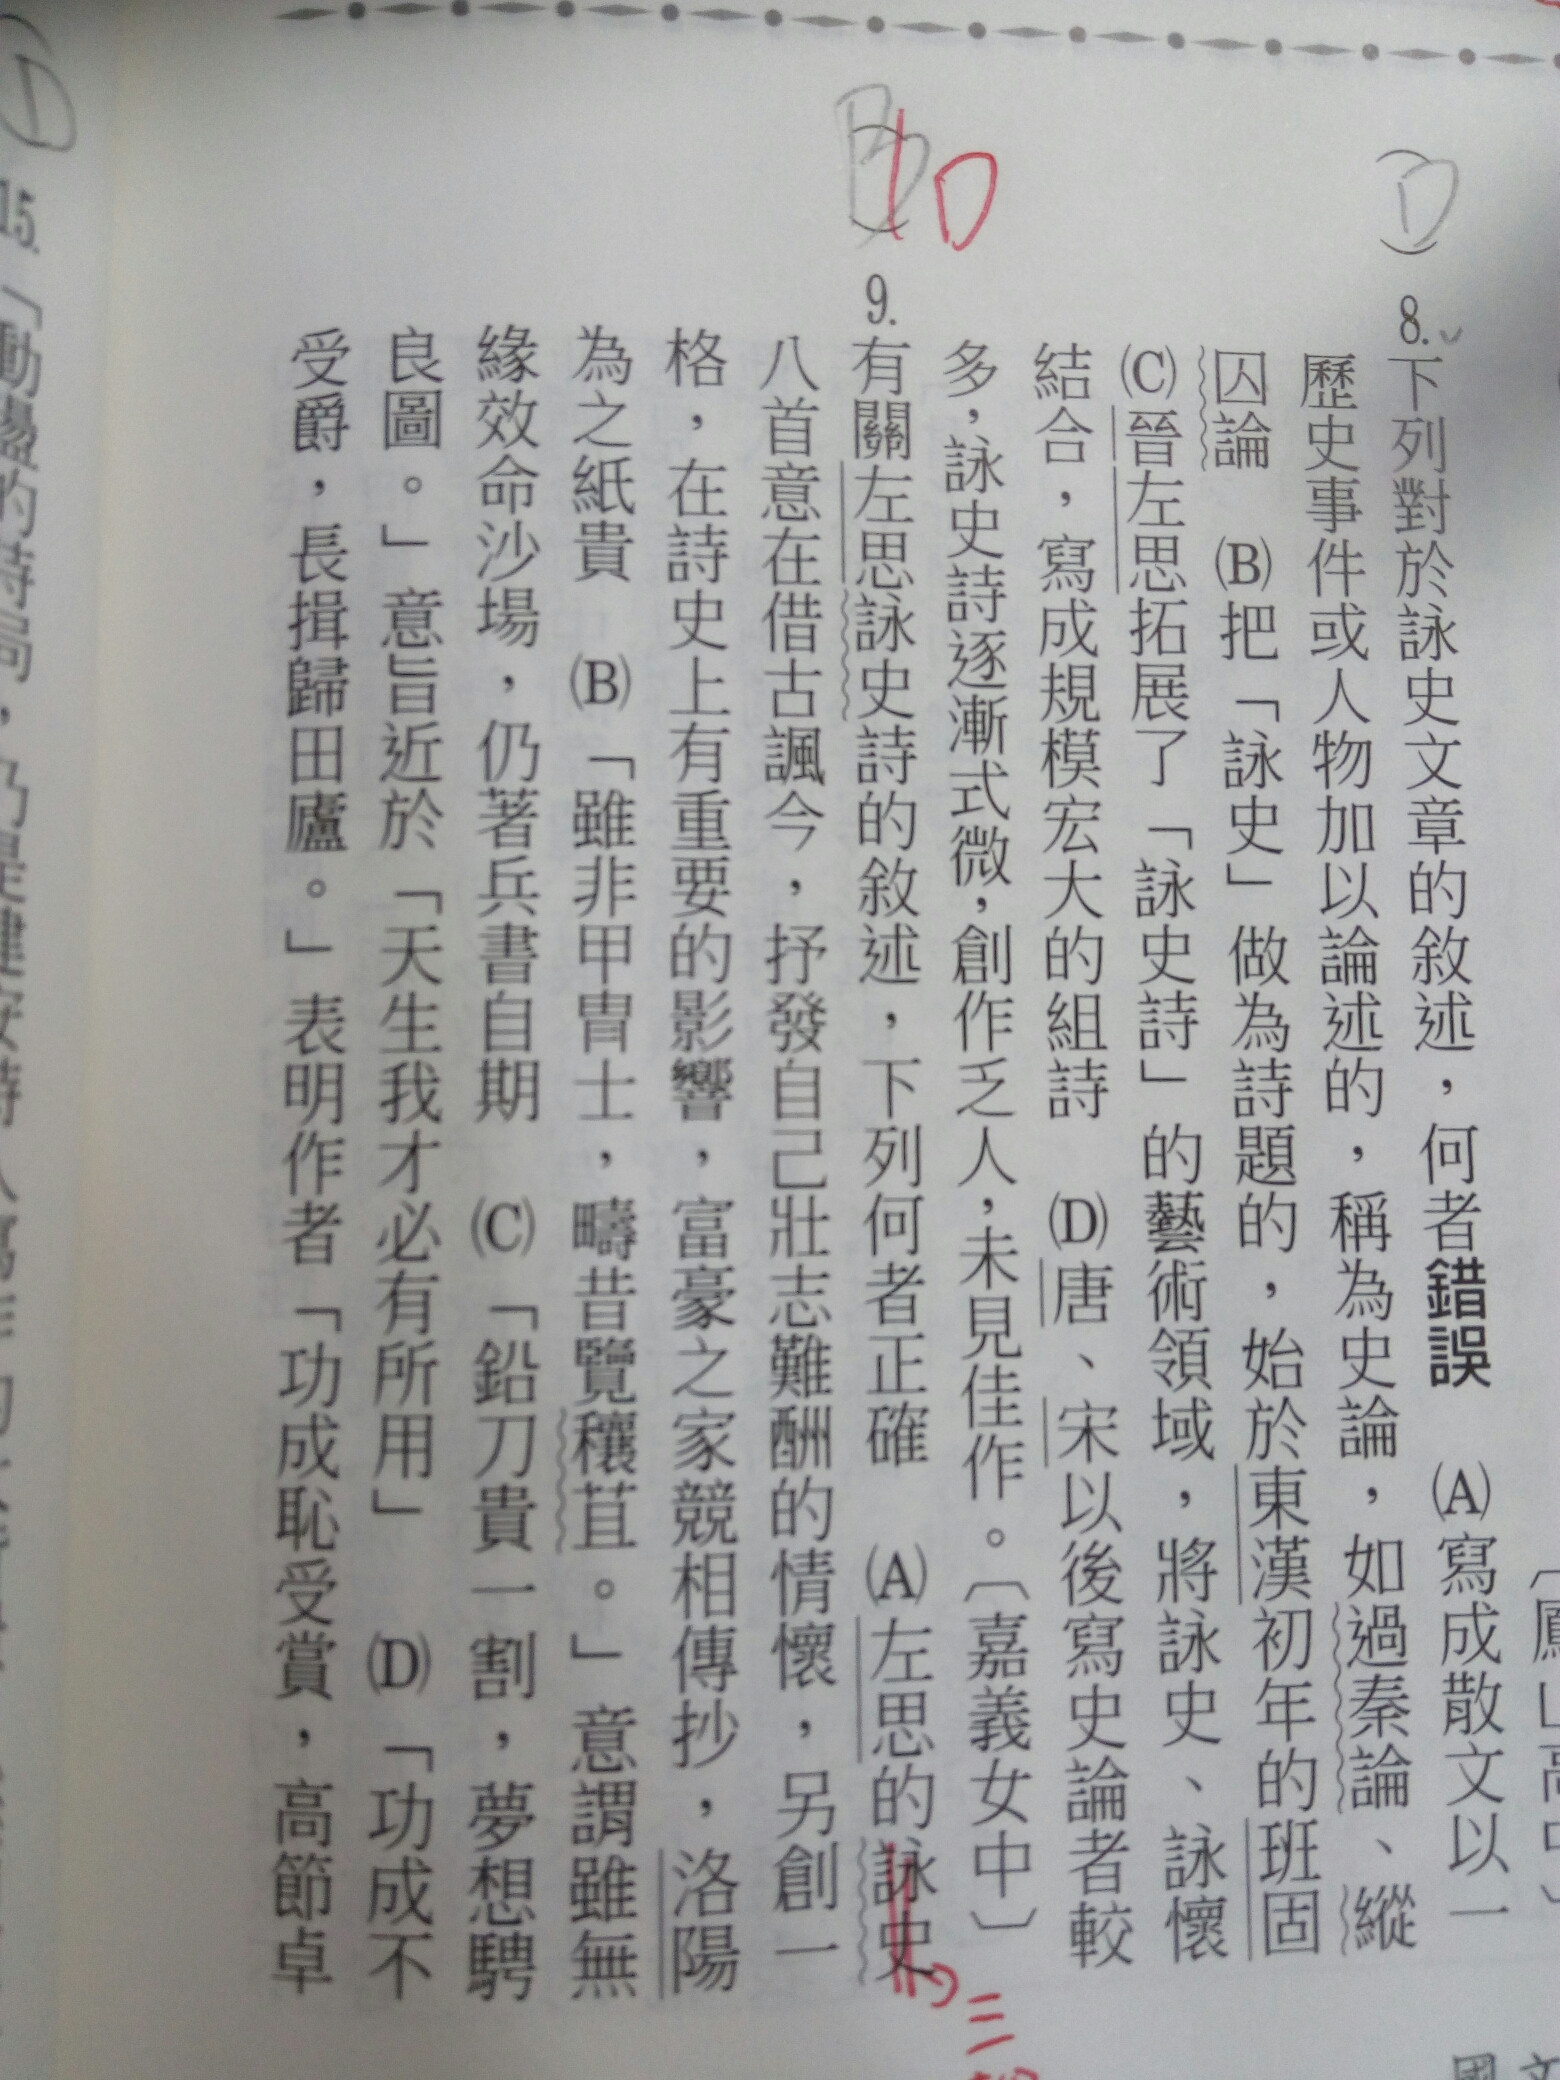 (D)
8.下列對於詠史文章的敘述，何者錯誤　(A)寫成散文以一
歷史事件或人物加以論述的，稱為史論，如過秦論、縱
囚論　(B)把「詠史」做為詩題的，始於東漢初年的班固
(C)晉左思拓展了「詠史詩」的藝術領域，將詠史、詠懷
結合，寫成規模宏大的組詩　(D)唐、宋以後寫史論者較
多，詠史詩逐漸式微，創作乏人，未見佳作。〔嘉義女中〕
(B) D
9.有關左思詠史詩的敘述，下列何者正確　(A)左思的詠史
八首意在借古諷今，抒發自己壯志難酬的情懷，另創一
格，在詩史上有重要的影響，富豪之家競相傳抄，洛陽
為之紙貴　(B)「雖非甲冑士，疇昔覽穰苴。」意謂雖無
緣效命沙場，仍著兵書自期　(C)「鉛刀貴一割，夢想騁
良圖。」意旨近於「天生我才必有所用」　(D)「功成不
受爵，長揖歸田廬。」表明作者「功成恥受賞，高節卓
15.
國文